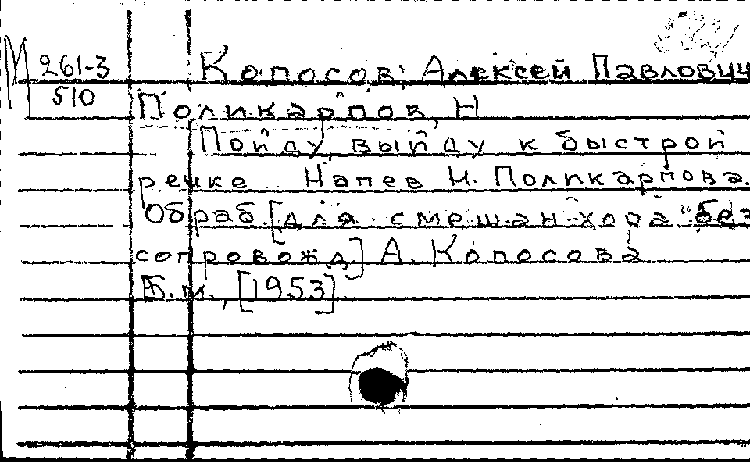 М 261-3
510
Копосов, Алексей Павлович
Поликарпов, Н
Пойду, выйду к быстрой
речке Напев Н. Поликарпова.
Обраб. [для смешан. хора без
сопровожд.] А. Копосова
Б.м., [1953]